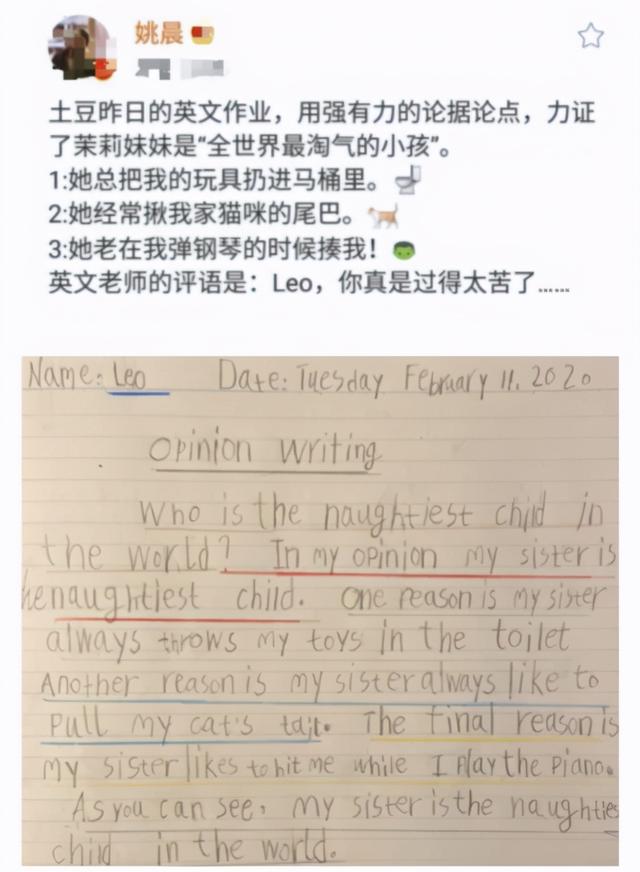 姚晨
土豆昨日的英文作业，用强有力的论据论点，力证
了茉莉妹妹是“全世界最淘气的小孩”。
1:她总把我的玩具扔进马桶里。🚽
2:她经常揪我家猫咪的尾巴。🐈
3:她老在我弹钢琴的时候揍我！
英文老师的评语是：Leo，你真是过得太苦了......
Name: Leo Date: Tuesday February 11. 2020
Opinion Writing
Who is the naughtiest child in
the world? In my opinion my sister is
he naughtiest child. One reason is my sister
always throws my toys in the toilet
Another reason is my sister always like to
Pull my cat's tail. The final reason is
my sister likes to hit me while I Play the Piano.
As you can see, my sister is the naughties
child in the world.